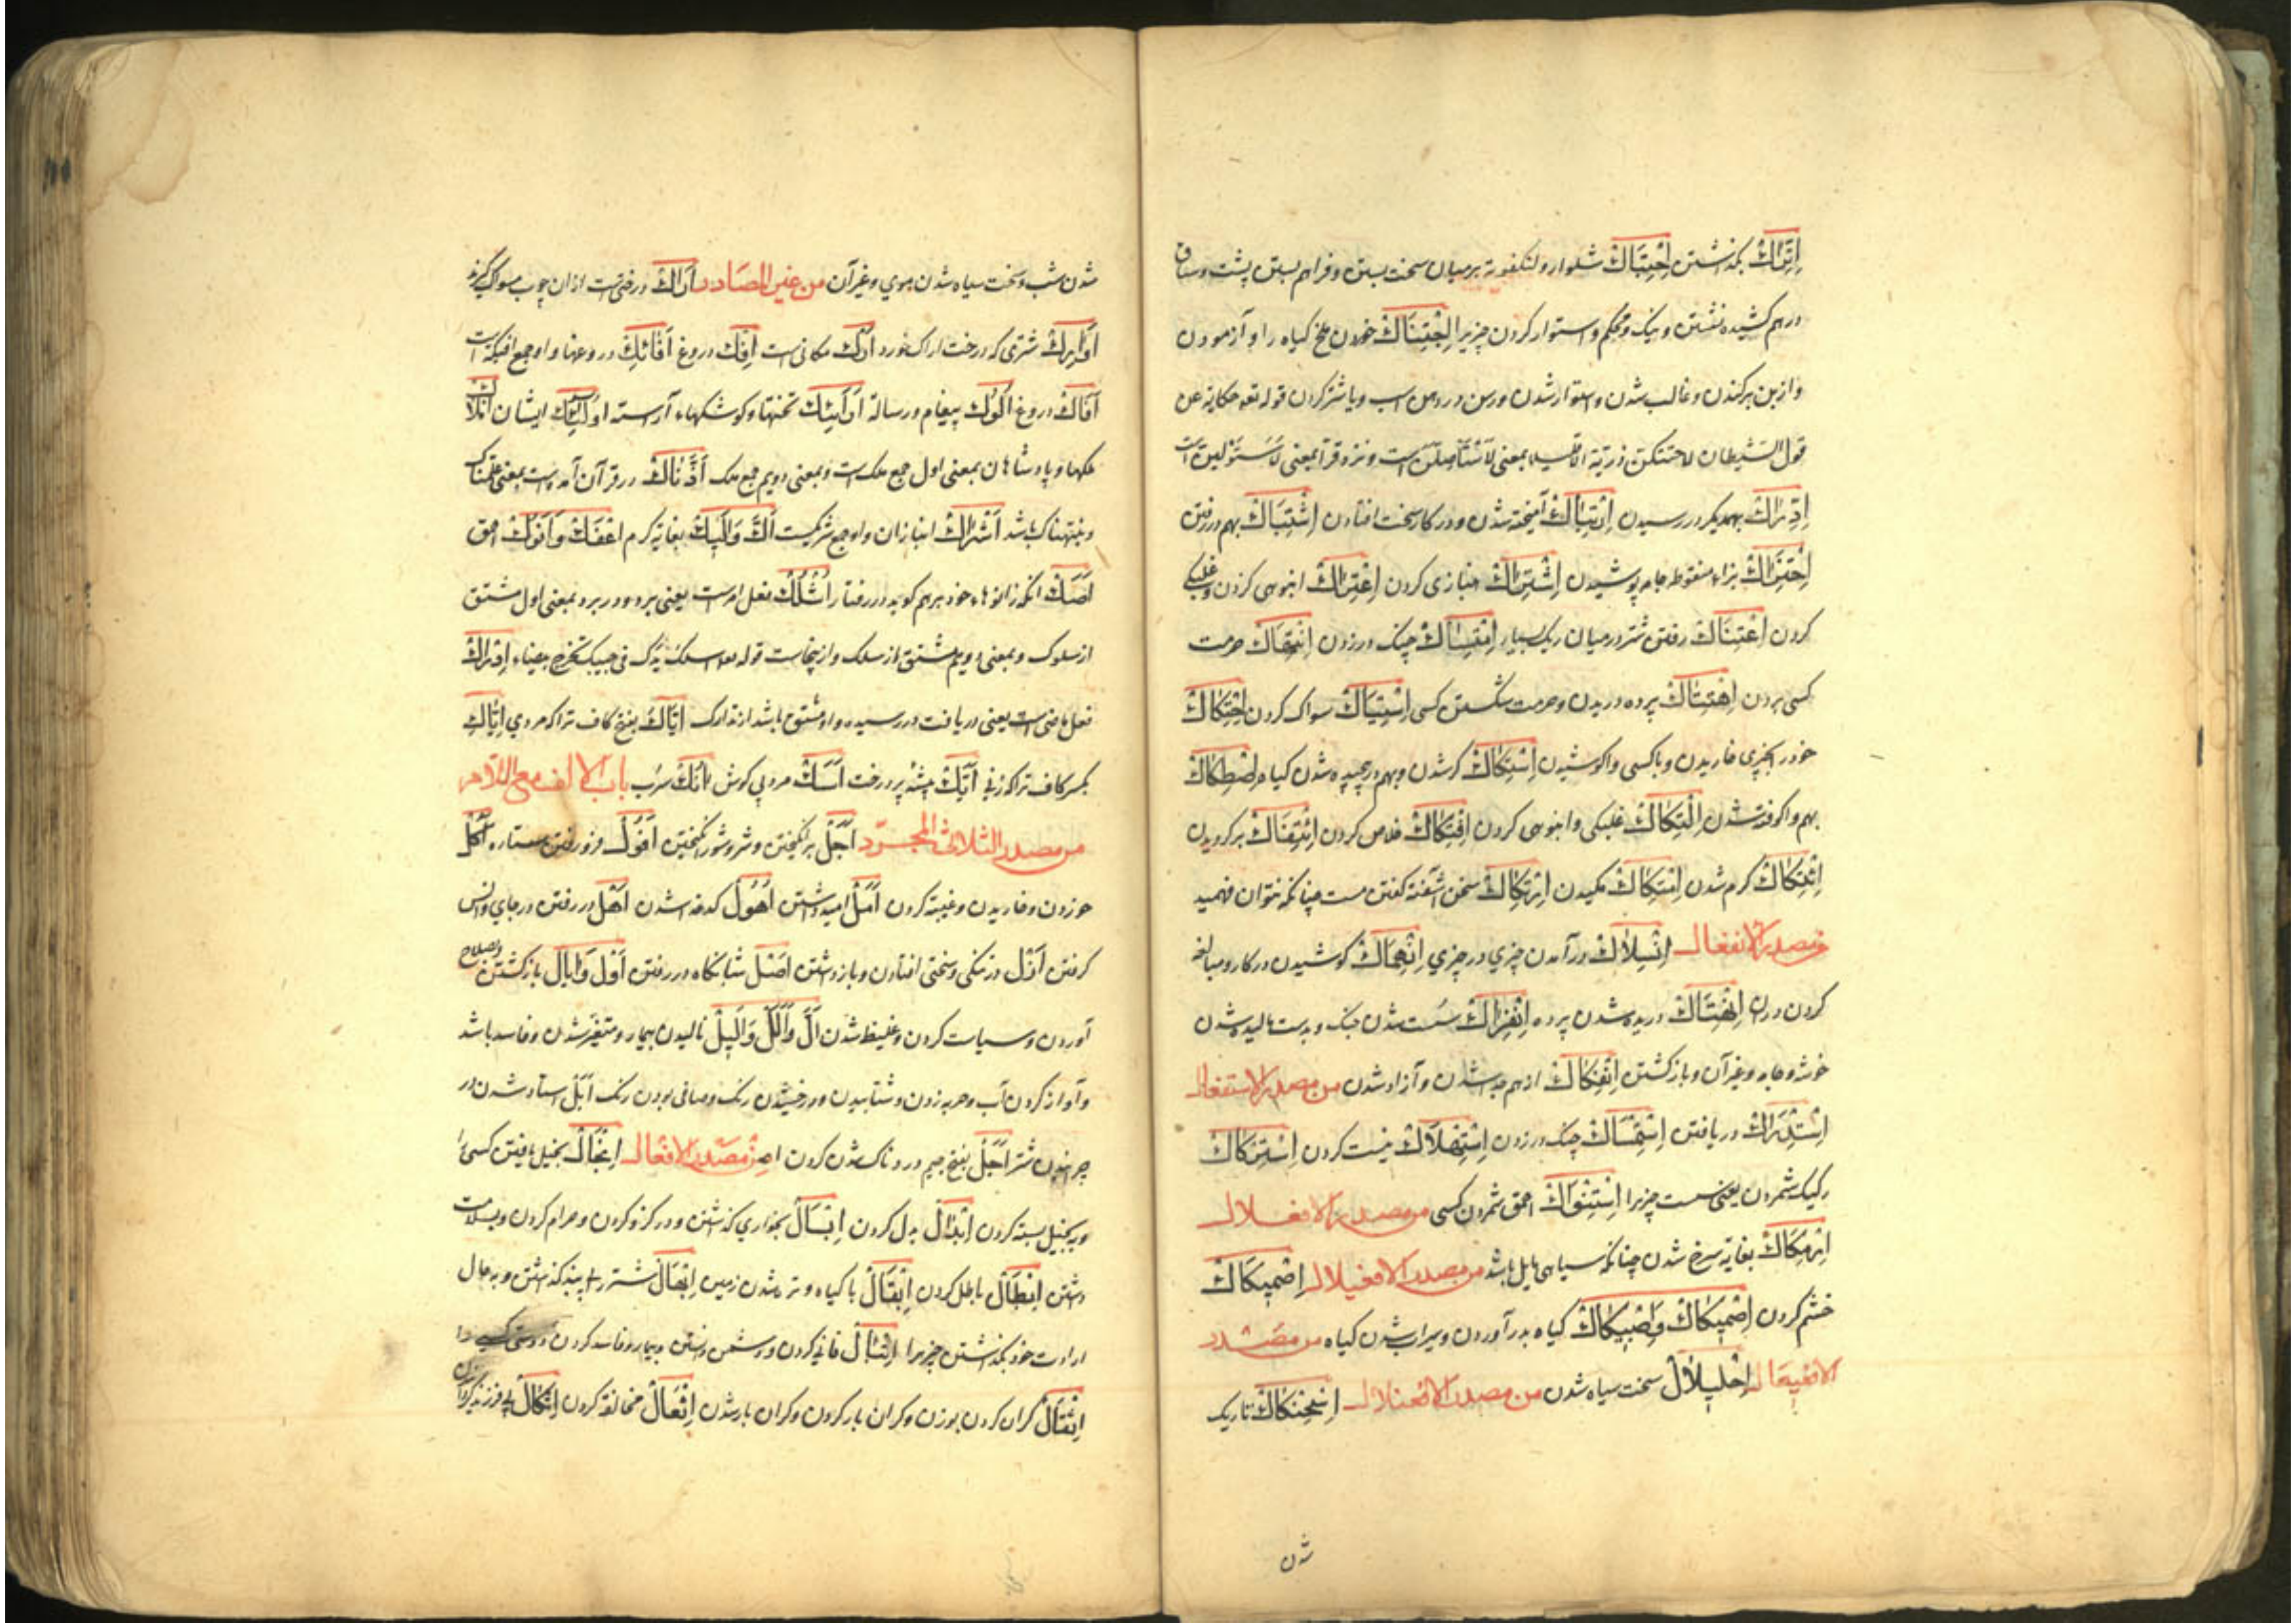 اِتِّرَاكْ بگذاشتن اِحْتِبَاكْ شلوار و لنگفوته بر میان سخت بستن و فراهم بستن پشت و ساق
درهم کشیده نشستن و نیک و محکم و استوار کردن چیزیرا اِحْتِنَاكْ خوردن ملخ کیاه را و آزمودن
و از بن برکندن و غالب شدن و استوار شدن و رسن در دهن اسب و یا شتر کردن قوله تعه حکایة عن
قول الشیطان لاحتنکن ذریته الا قلیلا بمعنی لاستأصلن است و نزد قرا بمعنی لاستولین است
اِدِّرَاكْ بهمدیکر در رسیدن اِرْتِبَاكْ آمیخته شدن و در کار سخت افتادن اِشْتِبَاكْ بهم در رفتن
اِحْتِزَاكْ بزاء منقوطه جامه پوشیدن اِشْتِرَاكْ انبازی کردن اِعْتِرَاكْ انبوهی کردن و غلبکی
کردن اِعْتِنَاكْ رفتن شتر در میان ریک بسیار اِمْتِسَاكْ چنک در زدن اِنْتِهَاكْ حرمت
کسی بردن اِهْتِتَاكْ پرده دریدن و حرمت شکستن کسی اِسْتِیَاكْ سواک کردن اِحْتِكَاكْ
خود را بچیزی خاریدن و با کسی واکوشیدن اِسْتِكَاكْ کر شدن و بهم در چسپیده شدن کیاه اِصْطِكَاكْ
بهم واکوفته شدن اِلْتِكَاكْ غلبکی و انبوهی کردن اِفْتِكَاكْ خلاص کردن اِئْتِفَاكْ برکردیدن
اِئْتِكَاكْ کرم شدن اِمْتِكَاكْ مکیدن اِرْتِكَاكْ سخن آشفته کفتن مست چنانکه نتوان فهمید
من مصدر الانفعال اِنْسِلَاكْ درآمدن چیزی در چیزی اِنْهِمَاكْ کوشیدن در کار و مبالغه
کردن دران اِنْهِتَاكْ دریده شدن پرده اِنْفِرَاكْ سست شدن جنک و بدست مالیده شدن
خوشه و جامه و غیر آن و بازکشتن اِنْفِكَاكْ از هم جدا شدن و آزاد شدن من مصدر الاستفعال
اِسْتِدْرَاكْ دریافتن اِسْتِمْسَاكْ چنک در زدن اِسْتِهْلَاكْ نیست کردن اِسْتِرْكَاكْ
رکیک شمردن یعنی سست چیزیرا اِسْتِنْوَاكْ احمق شمردن کسی من مصدر الافعلال
اِرْمِكَاكْ بغایة سرخ شدن چنانکه بسیاهی مایل باشد من مصدر الافعیلال اِضْمِيكَاكْ
خشم کردن اِضْمِيكَاكْ وَاِضْبِيكَاكْ کیاه بدر آوردن و سیراب شدن کیاه من مصدر
الافعیعال اِحْلِيلَالْ سخت سیاه شدن من مصدر الافعنلال اِسْحِنْكَاكْ تاریک
شدن
شدن شب و سخت سیاه شدن موی و غیر آن من غیر المصادر اَرَاكْ درختی است از ان چوب مسواک کیرند
اَوَارِكْ شتری که درخت اراک خورد اَرَكْ مکانی است اِفْكْ دروغ اَفَائِكْ دروغها و او جمع افیکة است
اَفَّاكْ دروغ اَلُوكْ پیغام و رسالة اَرَائِكْ تختها و کوشکهاء آراسته اُولَئِكْ ایشان اَمْلَاكْ
ملکها و پادشاهان بمعنی اول جمع ملک است و بمعنی دویم جمع ملک در قرآن آمده است بمعنی
باشد اَشْرَاكْ انبازان و او جمع شریکست اَكّْ وَاَكِيكْ بغایة کرم اَعْفَكْ وَاَنْوَكْ احمق
اَصَكّْ آنکه زانوهاء خود بر هم کوبد در رفتار اُسْلُكْ فعل امر است یعنی برو و در برد بمعنی اول مشتق
از سلوک و بمعنی دویم مشتق از سلک و از ینجاست قوله تعه اسلک یدک فی جیبک تخرج بیضاء اِدّٰرَكْ
فعل ماضی است یعنی دریافت و در رسید و او مشتق باشد از تدارک اِیَّاكَ بفتح کاف ترا که مردی اِیَّاكِ
بکسر کاف ترا که زنی اَیْكْ بیشه پر درخت اَسَكّْ مردی کوش اٰنُكْ سرب باب الالف مع اللام
من مصدر الثلاثی المجرد اَجْلْ برانکیختن و شر و شور انکیختن اُفُولْ فرو رفتن ستاره اَكْلْ
خوردن و خاریدن و غیبة کردن اَمَلْ امید داشتن اُهُولْ کدخدا شدن اَهْلْ در رفتن در جای و انس
کرفتن اَزْلْ در تنکی و سختی افتادن و باز داشتن اَصْلْ شبانکاه در رفتن اَوْلْ وَاِیَالْ بازکشتن و بصلاح
آوردن و سیاست کردن و غلیظ شدن اَلّْ وَاَلَلْ وَاَلِيلْ نالیدن بیمار و متغیر شدن و فاسد باشد
و آواز کردن آب و حربه زدن و شتابیدن و درخشیدن رنک و صافی بودن رنک اَبْلْ استاد شدن در
چرانیدن شتر اَجَلْ بفتح جیم دردناک شدن کردن من مصدر الافعال اِبْخَالْ بخیل یافتن کسی را
و به بخیل نسبة کردن اِبْدَالْ بدل کردن اِبْسَالْ بخواری کذاشتن و در کرو کردن و حرام کردن و بسلامت
داشتن اِبْطَالْ باطل کردن اِبْقَالْ با کیاه و تره شدن زمین اِبْهَالْ شتر را بی بند کذاشتن و بحال
ارادت خود بکذاشتن چیزیرا اِتْبَالْ فانی کردن و دشمن داشتن و بیمار و فاسد کردن دوستی کسی را
اِثْقَالْ کران کردن بوزن و کران بار کردن و کران بار شدن اِثْعَالْ مخالفة کردن اِثْكَالْ بی فرزند کردن